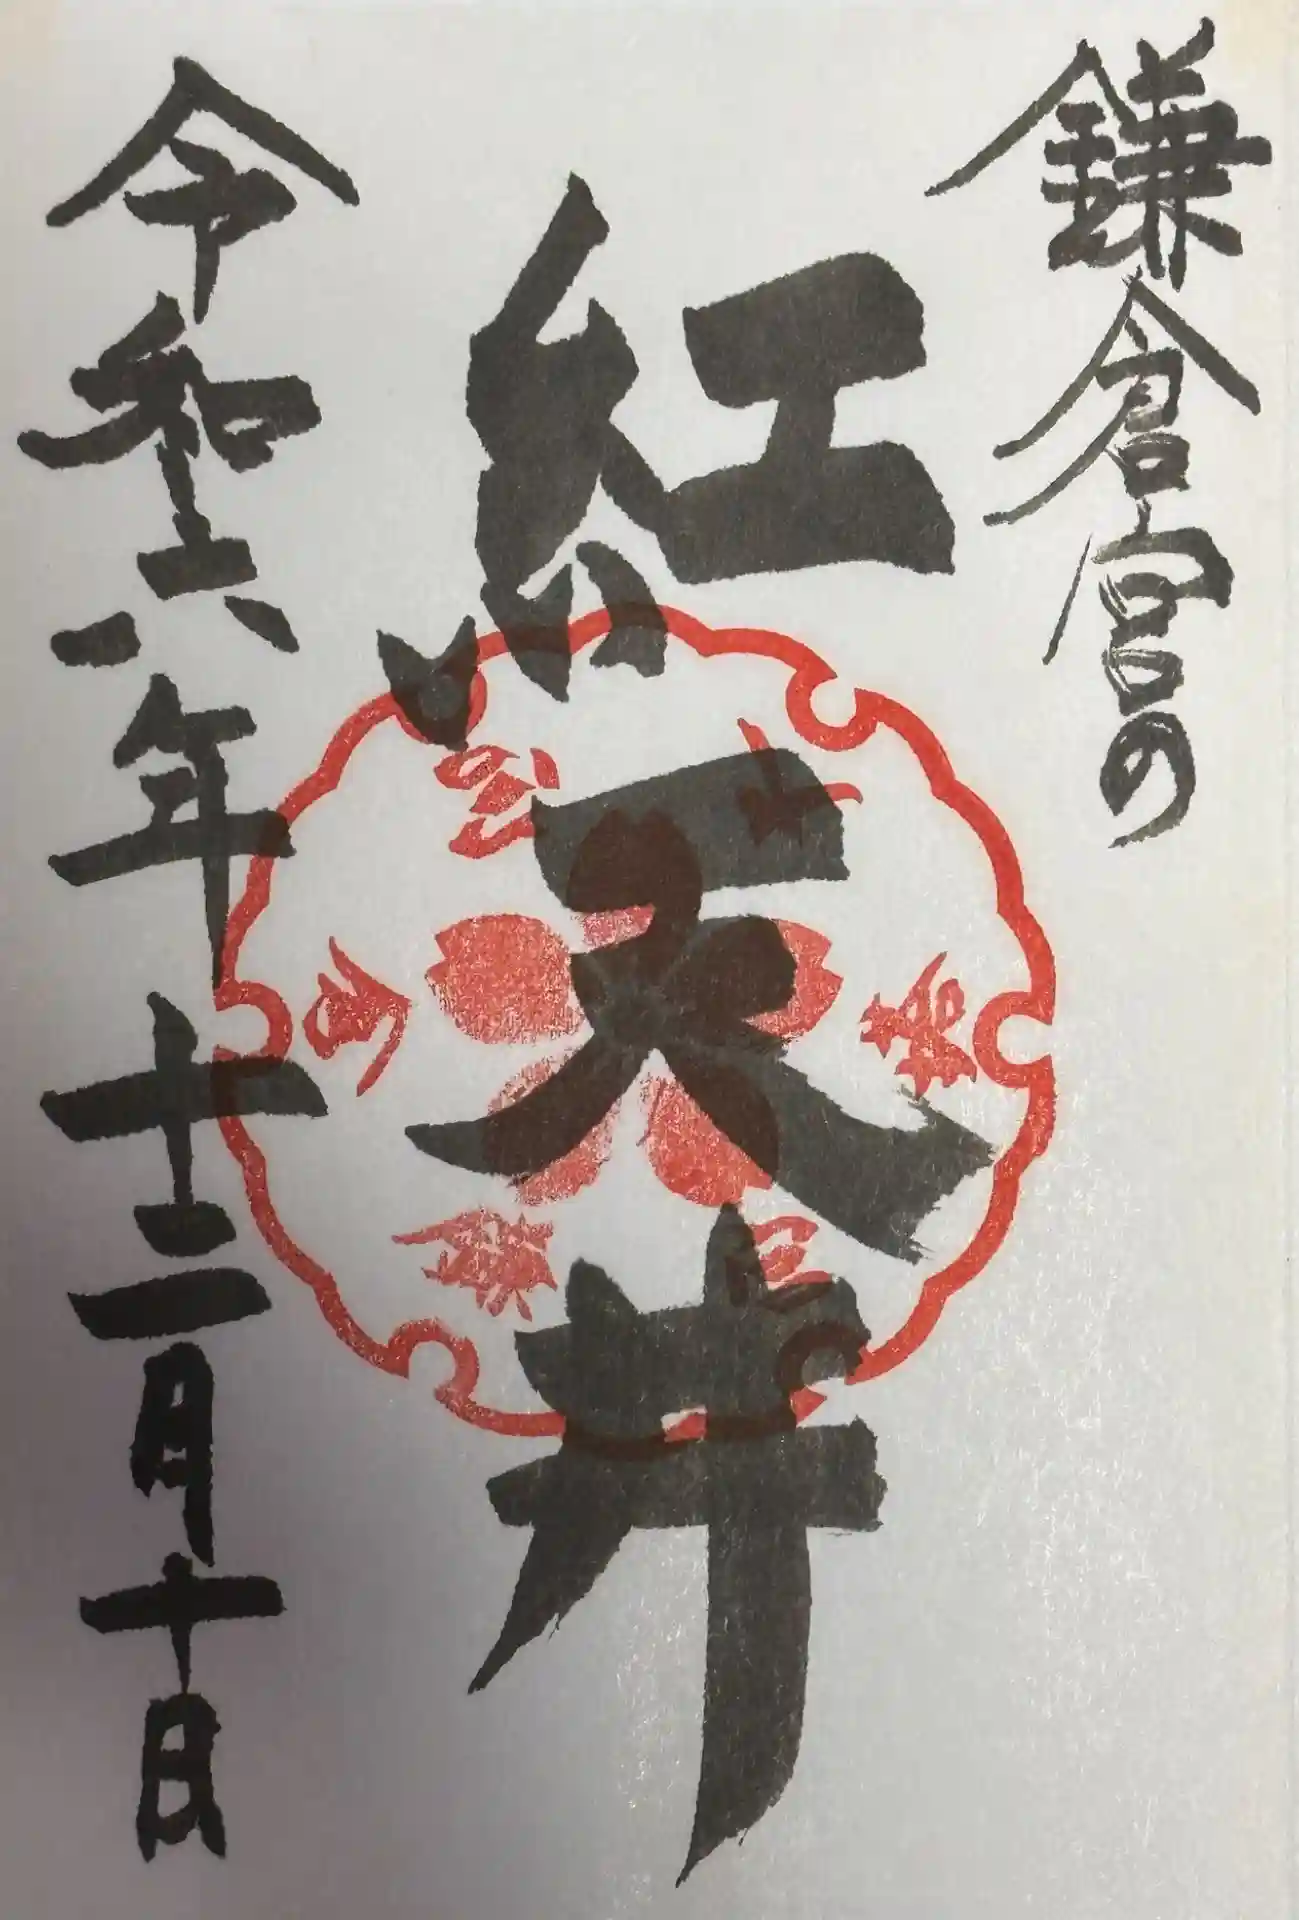 鎌倉宮の
紅天井
令和六年十二月十日